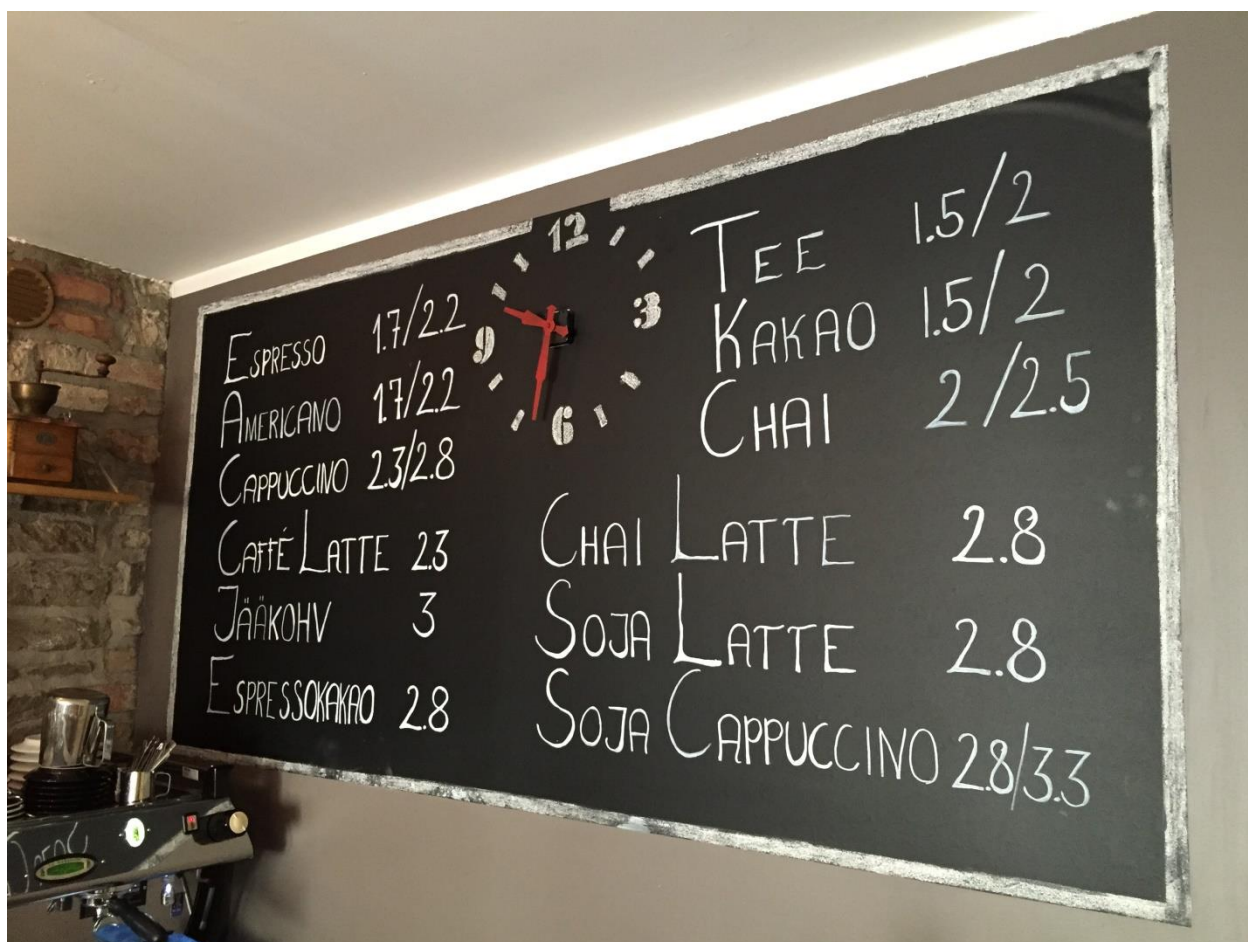 12
3
6
9
ESPRESSO 1.7/2.2
AMERICANO 1.7/2.2
CAPPUCCINO 2.3/2.8
CAFFÉ LATTE 2.3
JÄÄKOHV 3
ESPRESSOKAKAO 2.8
TEE 1.5/2
KAKAO 1.5/2
CHAI 2/2.5
CHAI LATTE 2.8
SOJA LATTE 2.8
SOJA CAPPUCCINO 2.8/3.3